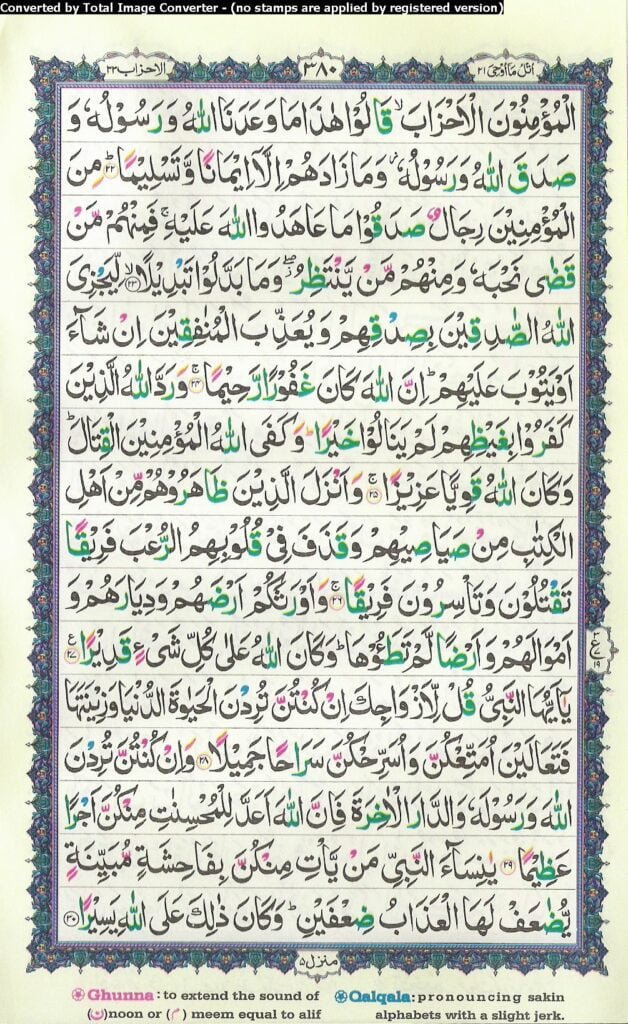 Converted by Total Image Converter - (no stamps are applied by registered version)
الاحزاب ٣٣
٣٨٠
اتل مآ اوحی ٢١
الْمُؤْمِنُوْنَ الْاَحْزَابَ ۙ قَالُوْا هٰذَا مَا وَعَدَنَا اللّٰهُ وَرَسُوْلُهٗ وَ
صَدَقَ اللّٰهُ وَرَسُوْلُهٗ ۡ وَمَا زَادَهُمْ اِلَّاۤ اِيْمَانًا وَّتَسْلِيْمًا ؕ ٢٢ مِنَ
الْمُؤْمِنِيْنَ رِجَالٌ صَدَقُوْا مَا عَاهَدُوا اللّٰهَ عَلَيْهِ ۚ فَمِنْهُمْ مَّنْ
قَضٰى نَحْبَهٗ وَمِنْهُمْ مَّنْ يَّنْتَظِرُ ۖ وَمَا بَدَّلُوْا تَبْدِيْلًا ۙ ٢٣ لِّيَجْزِىَ
اللّٰهُ الصّٰدِقِيْنَ بِصِدْقِهِمْ وَيُعَذِّبَ الْمُنٰفِقِيْنَ اِنْ شَآءَ
اَوْ يَتُوْبَ عَلَيْهِمْ ؕ اِنَّ اللّٰهَ كَانَ غَفُوْرًا رَّحِيْمًا ۚ ٢٤ وَرَدَّ اللّٰهُ الَّذِيْنَ
كَفَرُوْا بِغَيْظِهِمْ لَمْ يَنَالُوْا خَيْرًا ؕ وَكَفَى اللّٰهُ الْمُؤْمِنِيْنَ الْقِتَالَ ؕ
وَكَانَ اللّٰهُ قَوِيًّا عَزِيْزًا ۚ ٢٥ وَاَنْزَلَ الَّذِيْنَ ظَاهَرُوْهُمْ مِّنْ اَهْلِ
الْكِتٰبِ مِنْ صَيَاصِيْهِمْ وَقَذَفَ فِىْ قُلُوْبِهِمُ الرُّعْبَ فَرِيْقًا
تَقْتُلُوْنَ وَتَاْسِرُوْنَ فَرِيْقًا ۚ ٢٦ وَاَوْرَثَكُمْ اَرْضَهُمْ وَدِيَارَهُمْ وَ
اَمْوَالَهُمْ وَاَرْضًا لَّمْ تَطَئُوْهَا ؕ وَكَانَ اللّٰهُ عَلٰى كُلِّ شَىْءٍ قَدِيْرًا ٢٧ ع
٣ ع ١٩
يٰۤاَيُّهَا النَّبِىُّ قُلْ لِّاَزْوَاجِكَ اِنْ كُنْتُنَّ تُرِدْنَ الْحَيٰوةَ الدُّنْيَا وَزِيْنَتَهَا
فَتَعَالَيْنَ اُمَتِّعْكُنَّ وَاُسَرِّحْكُنَّ سَرَاحًا جَمِيْلًا ٢٨ وَاِنْ كُنْتُنَّ تُرِدْنَ
اللّٰهَ وَرَسُوْلَهٗ وَالدَّارَ الْاٰخِرَةَ فَاِنَّ اللّٰهَ اَعَدَّ لِلْمُحْسِنٰتِ مِنْكُنَّ اَجْرًا
عَظِيْمًا ٢٩ يٰنِسَآءَ النَّبِىِّ مَنْ يَّاْتِ مِنْكُنَّ بِفَاحِشَةٍ مُّبَيِّنَةٍ
يُّضٰعَفْ لَهَا الْعَذَابُ ضِعْفَيْنِ ؕ وَكَانَ ذٰلِكَ عَلَى اللّٰهِ يَسِيْرًا ٣٠
منزل ٥
Ghunna: to extend the sound of
(ن) noon or (م) meem equal to alif
Qalqala: pronouncing sakin
alphabets with a slight jerk.